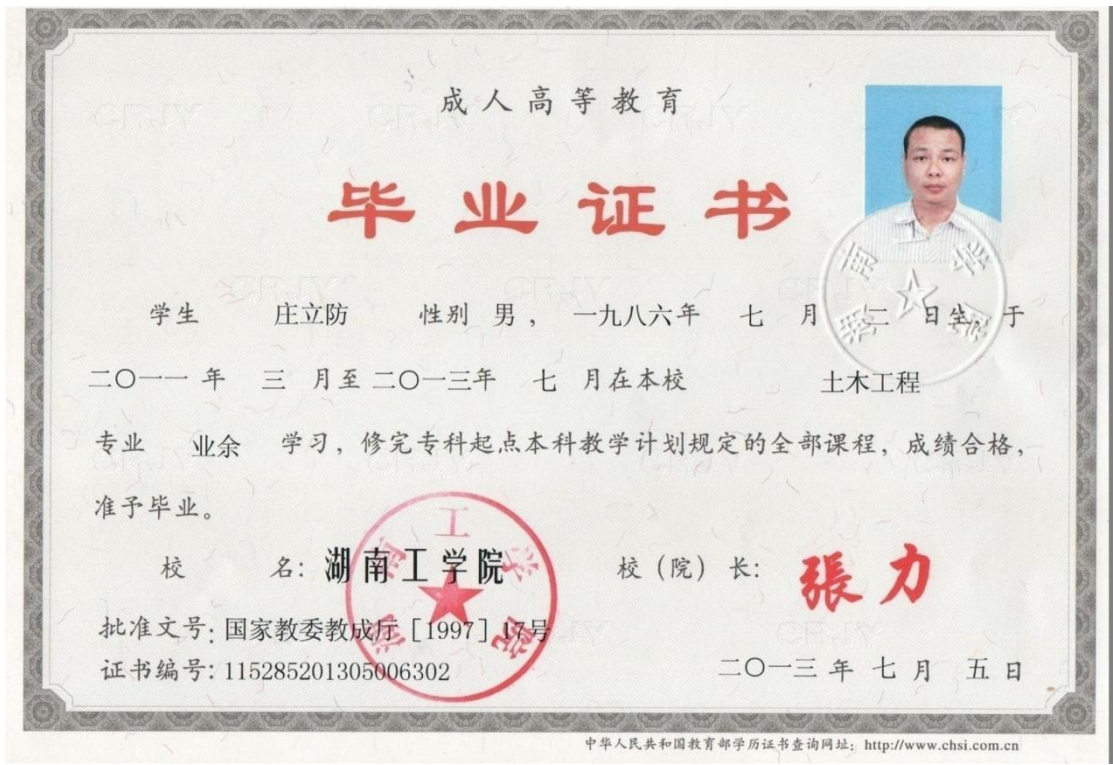 成人高等教育
毕业证书
学生 庄立防 性别 男， 一九八六年 七 月 二 日生，于
二〇一一 年 三 月至 二〇一三年 七 月在本校 土木工程
专业 业余 学习，修完专科起点本科教学计划规定的全部课程，成绩合格，
准予毕业。
校 名：湖南工学院 校（院）长：張力
批准文号：国家教委教成厅［1997］17号
证书编号：115285201305006302 二〇一三 年 七 月 五 日
中华人民共和国教育部学历证书查询网址：http://www.chsi.com.cn
湖南工学院